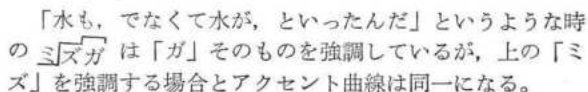 「水も，でなくて水が，といったんだ」というような時
の ミズガ は「ガ」そのものを強調しているが，上の「ミ
ズ」を強調する場合とアクセント曲線は同一になる。